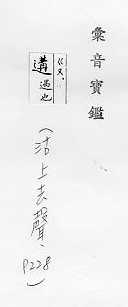 彙音寶鑑
ㄍㄡˋ
遘 遇也
(沽上去聲、P228)